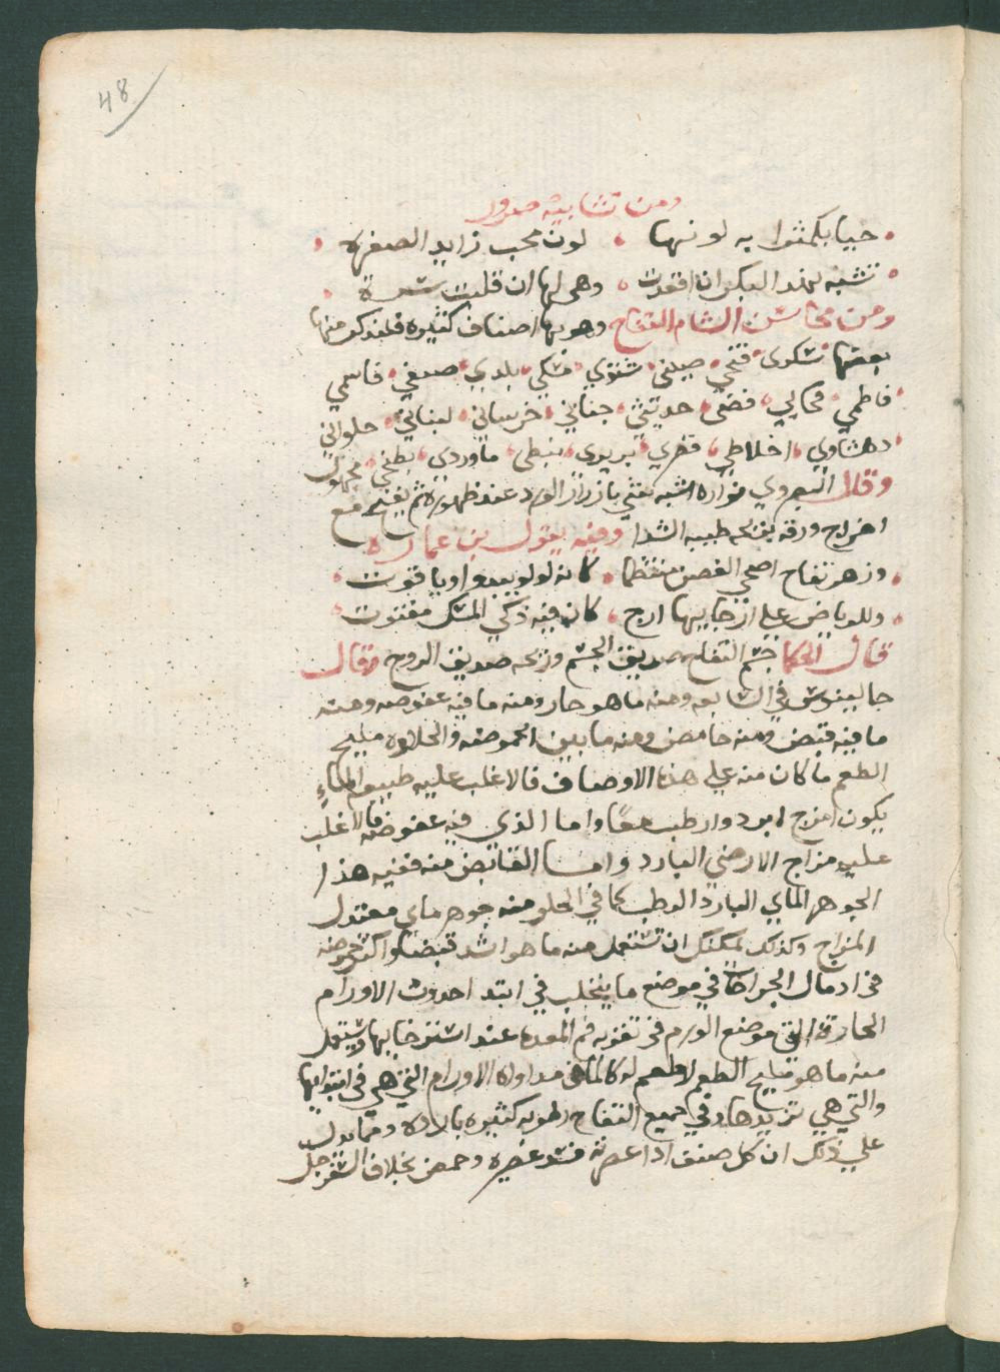 48
ومن تشابيه صردر
حيا بكمثرا به لونها لون محب زايد الصفره
تشبه نهد البكر ان اقعدت وهي لها ان قلبت سره
ومن محاسن الشام التفاح وهو بها اصناف كثيره فلنذكر منها
بعضها سكرى فتحي صينى شتوي مسكي بلدي صيفي قاسمي
فاطمي فضى حديثي جناني خرساني لبناني حلواني
دهشاوي اخلاطي بربرى نبطى ماوردى بطيخي مجهول
وقال نواره اشبه شي بازرار الورد عند ظهوره ثم يفتح مع
اخراج ورقه طيبه الشدا وفيه يقول بن عماره
وزهر تفاح اضحي الغصن منتظما كانه لولو يبدو اوياقوت
وللرياض علي ارجايها ارج كان فيه ذكي المسك مفتوت
قال الحكما جسم التفاح صديق الجسم وريحه صديق الروح وقال
جالينوس في السابعه ومنه ما هو حار ومنه ما فيه عفوصه ومنه
ما فيه قبض ومنه حامض ومنه ما بين الحموضه والحلاوه مليح
الطعم ما كان منه علي هذه الاوصاف فالاغلب عليه طبيعه الماء
يكون امزج ابرد وارطب معا واما الذي فيه عفوصه فالاغلب
عليه مزاج الارضي البارد واما القابض منه ففيه هذا
الجوهر الماي البارد الرطب كما في الحلو منه جوهر ماي معتدل
المزاج وكذلك يمكنك ان تستعمل منه ما هو اشد قبضا واكثر حموضه
في ادمال الجراحات في موضع ما ينجلب في ابتدا حدوث الاورام
الحارة الي موضع الورم في تقويه فم المعده عند استرخايها ويستعمل
منه ما هو مليح الطعم لا طعم له كالماء في مداواه الاورام التي هي في ابتدايها
والتي هي تزيدها وفي جميع التفاح رطوبه كثيره بارده ومما يدل
علي ذلك ان كل صنف اذا عصرته فسد عصيره وحمض بخلاف السفرجل